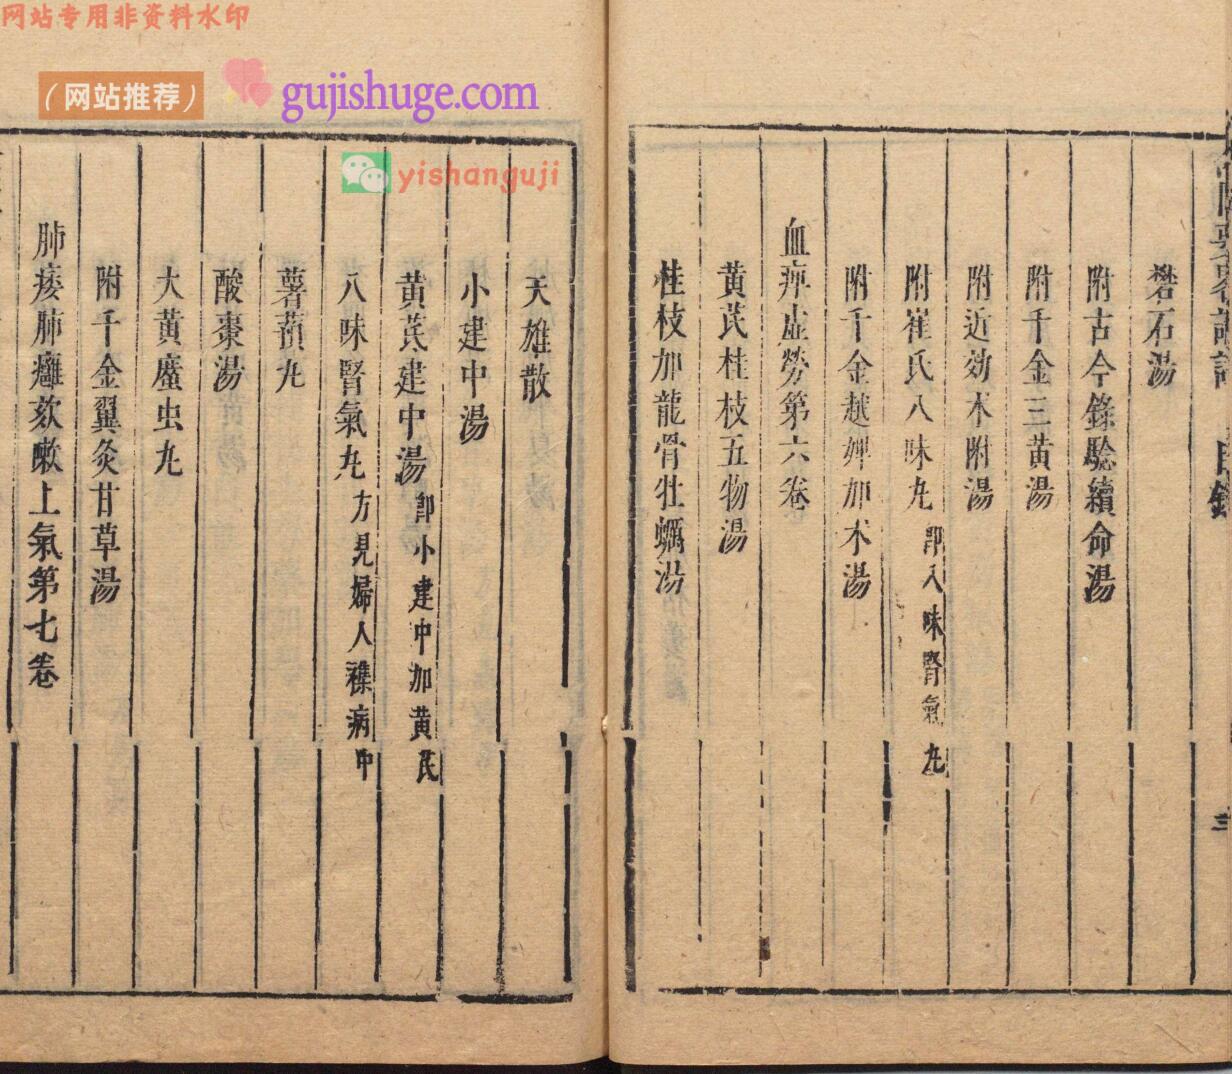 网站专用非资料水印
(网站推荐)
gujishuge.com
yishanguji
礬石湯
附古今錄驗續命湯
附千金三黃湯
附近効术附湯
附崔氏八味丸 即八味腎氣丸
附千金越婢加术湯
血痺虛勞第六卷
黃芪桂枝五物湯
桂枝加龍骨牡蠣湯
天雄散
小建中湯
黃芪建中湯 即小建中加黃芪
八味腎氣丸 方見婦人雜病中
薯蕷丸
酸棗湯
大黃䗪虫丸
附千金翼灸甘草湯
肺痿肺癰欬嗽上氣第七卷
目錄
三